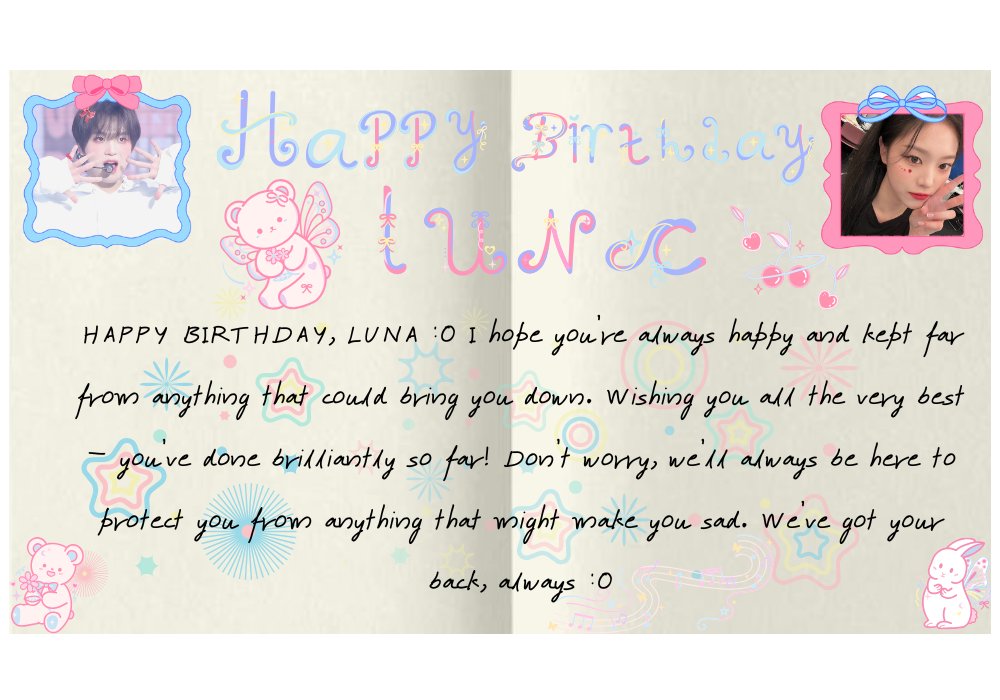 Happy Birthday
lUNa
HAPPY BIRTHDAY, LUNA :O I hope you're always happy and kept far
from anything that could bring you down. Wishing you all the very best
– you've done brilliantly so far! Don't worry, we'll always be here to
protect you from anything that might make you sad. We've got your
back, always :O